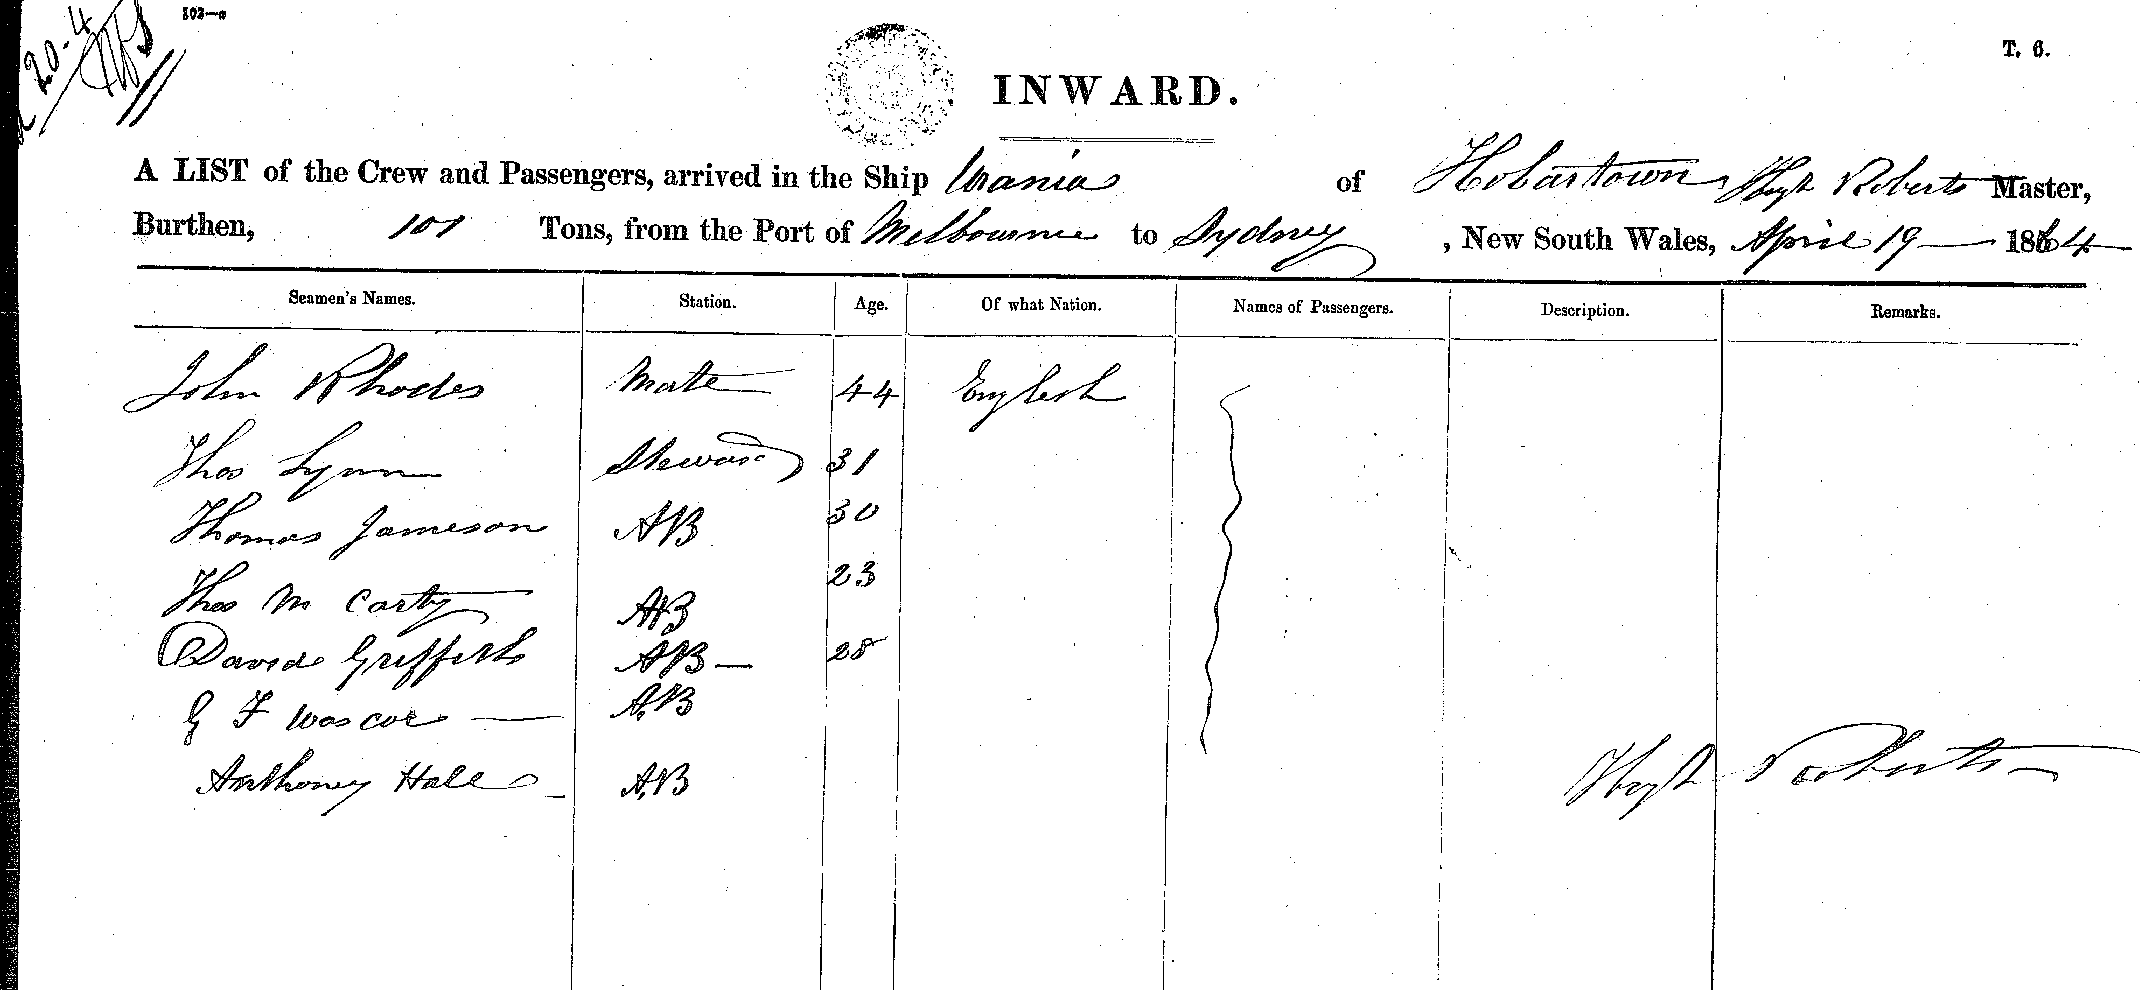 103—a
20-4
T. 6.
INWARD.
A LIST of the Crew and Passengers, arrived in the Ship Urania of Hobartown, Roberts Master,
Burthen, 101 Tons, from the Port of Melbourne to Sydney, New South Wales, April 19 — 1864
Seamen's Names. Station. Age. Of what Nation. Names of Passengers. Description. Remarks.
John Rhodes Mate 44 English
Thos Lynn Steward 31
Thomas Jameson AB 30
Thos M Carty AB 23
David Griffiths AB — 28
G F Wascoe — A.B
Anthony Hall A.B
Roberts